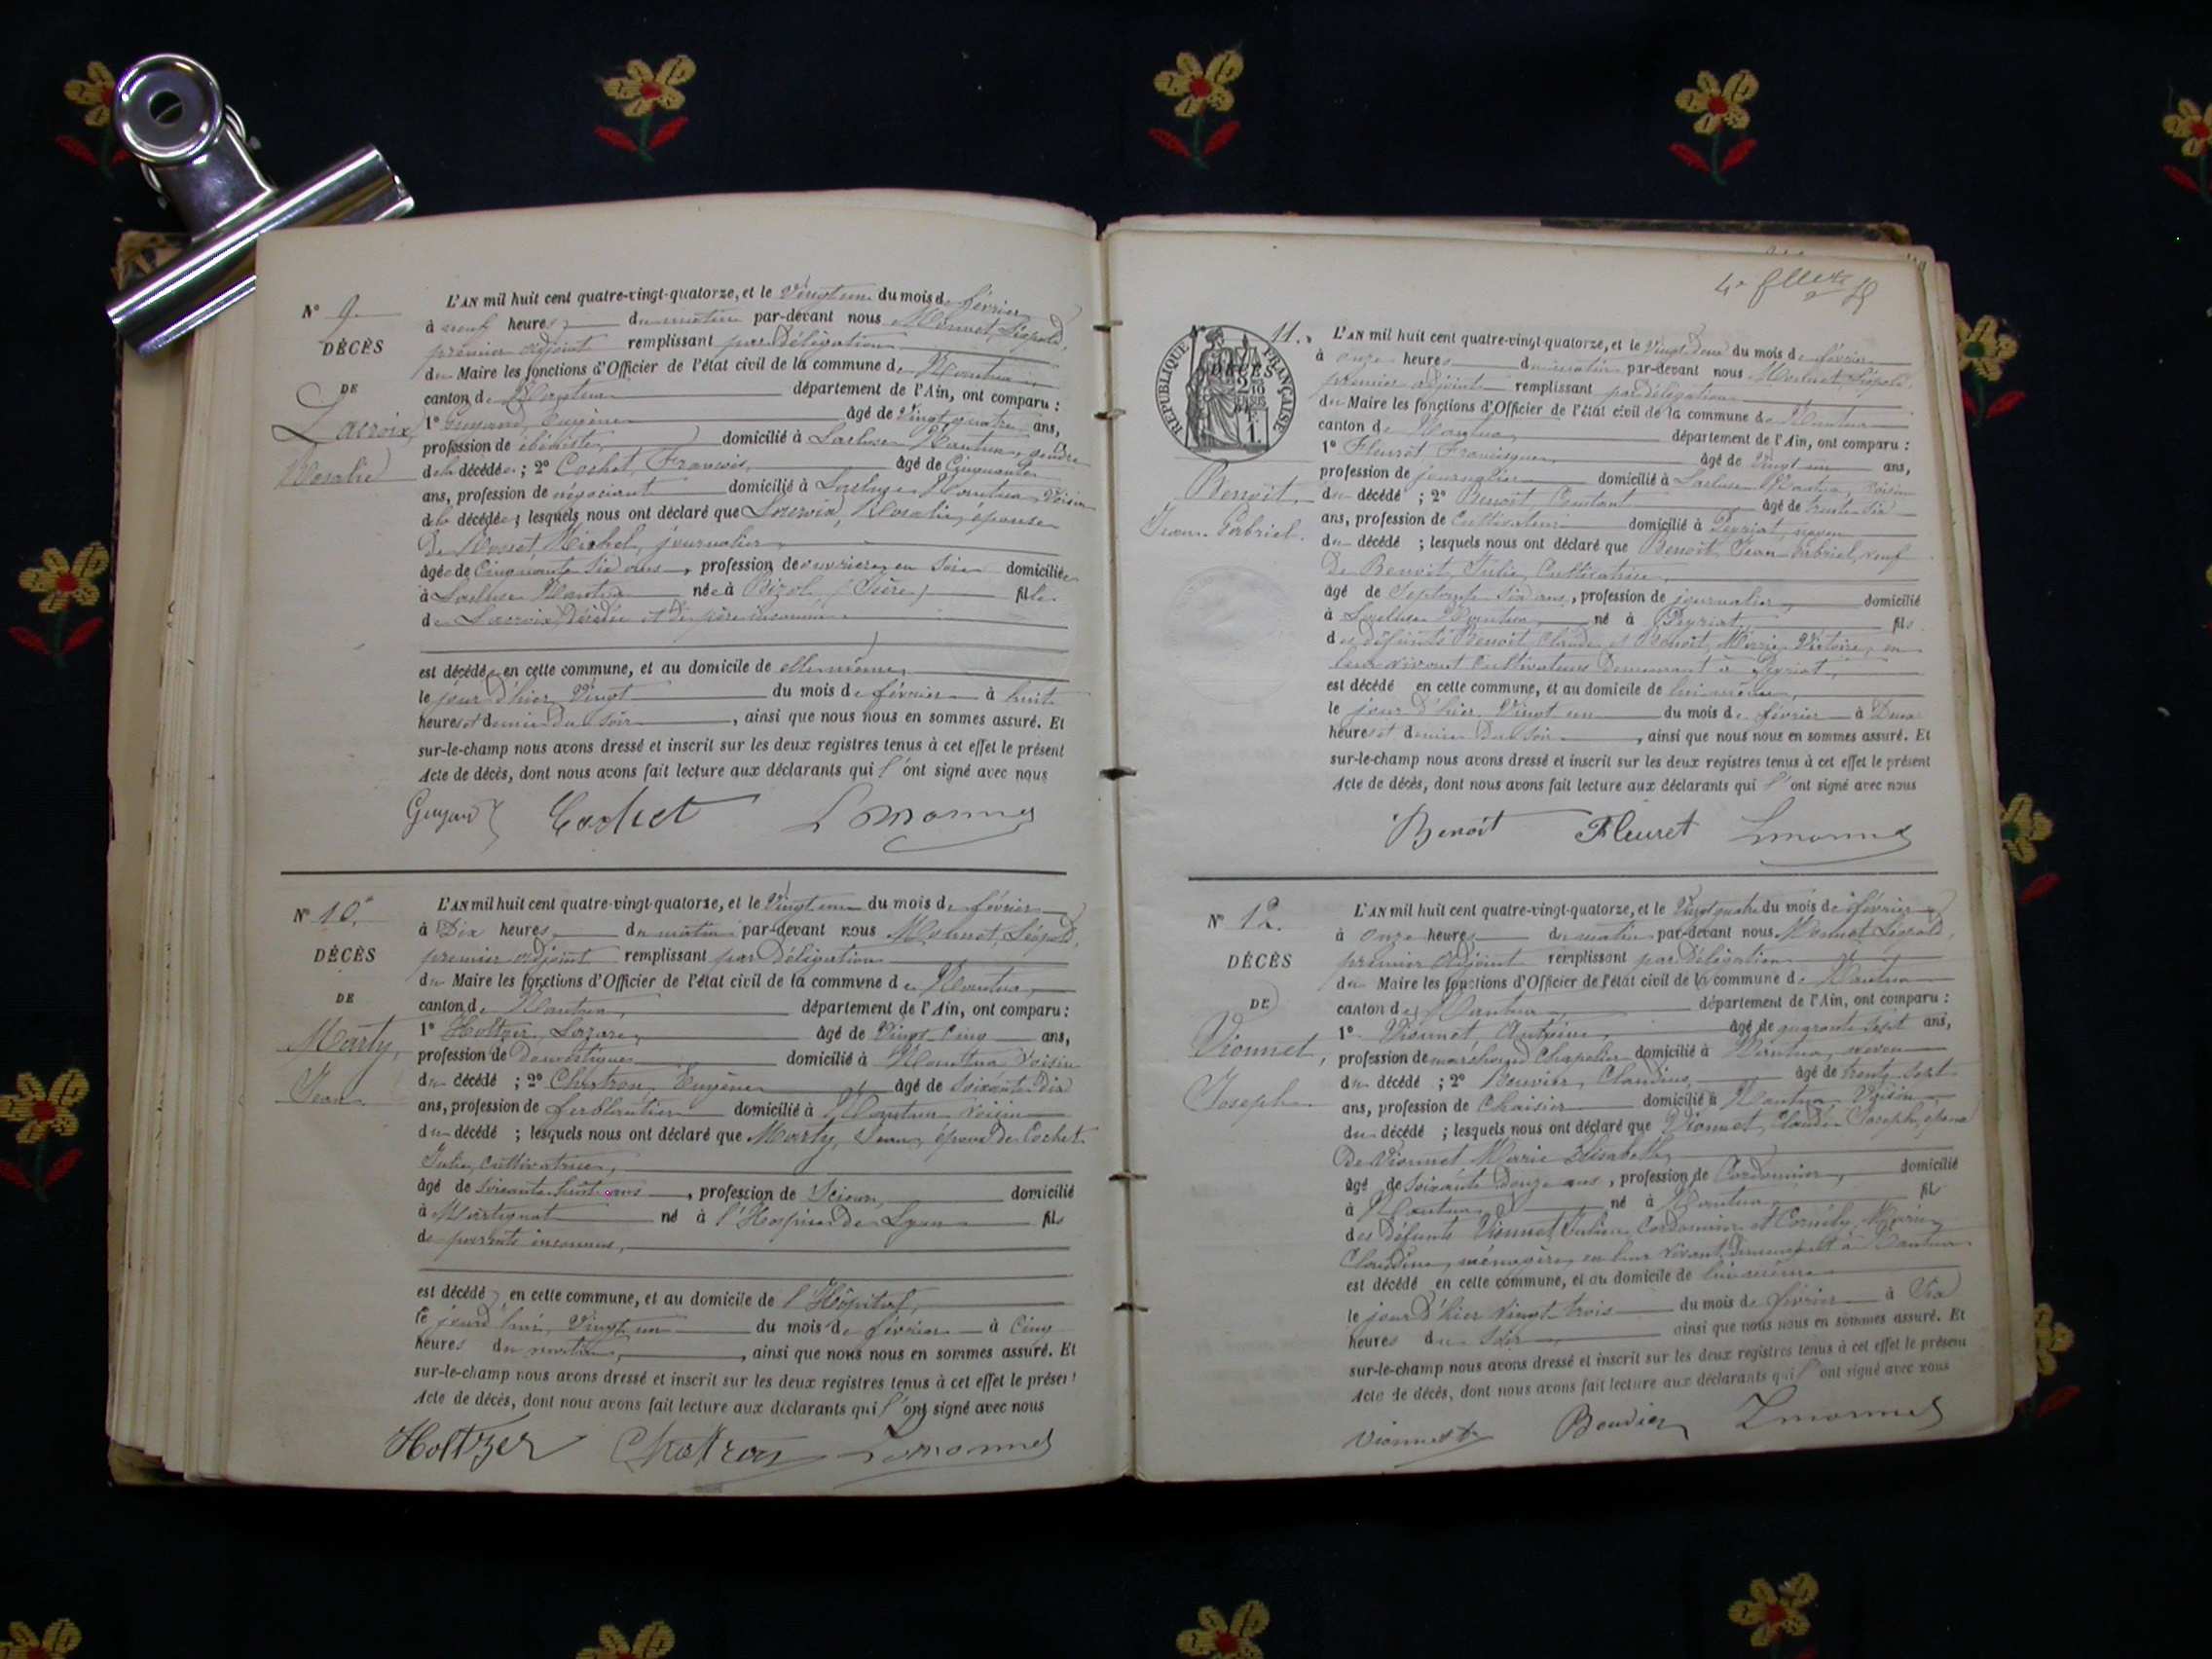 N° 9.
DÉCÈS
DE
Lacroix,
Rosalie
L'AN mil huit cent quatre-vingt-quatorze, et le Vingt un du mois de février
à neuf heures du matin par-devant nous Monnet, Léopold,
premier adjoint remplissant par Délégation
du Maire les fonctions d'Officier de l'état civil de la commune de Nantua
canton de Nantua département de l'Ain, ont comparu :
1° Eugène âgé de Vingt quatre ans,
profession de ébéniste, domicilié à Lacluse Nantua, gendre
de la décédée ; 2° Cochet, François, âgé de Cinquante
ans, profession de négociant domicilié à Lacluse Nantua, Voisin
de la décédée ; lesquels nous ont déclaré que Lacroix, Rosalie, épouse
de Michel, journalier,
âgée de Cinquante Six ans, profession de ouvrière en Soie domiciliée
à Lacluse Nantua née à (Isère) fille
de Lacroix, et de père inconnu
est décédée en cette commune, et au domicile de elle même,
le jour d'hier Vingt du mois de février à huit
heures et demie du Soir, ainsi que nous nous en sommes assuré. Et
sur-le-champ nous avons dressé et inscrit sur les deux registres tenus à cet effet le présent
Acte de décès, dont nous avons fait lecture aux déclarants qui l'ont signé avec nous
Cochet Lmonnet
N° 10.
DÉCÈS
DE
Marty,
Jean
L'AN mil huit cent quatre-vingt-quatorze, et le Vingt un du mois de février
à Dix heures du matin par-devant nous Monnet, Léopold,
premier adjoint remplissant par Délégation
du Maire les fonctions d'Officier de l'état civil de la commune de Nantua,
canton de Nantua, département de l'Ain, ont comparu :
1° Holtzer, Lazare, âgé de Vingt Cinq ans,
profession de Domestique domicilié à Nantua Voisin
du décédé ; 2° Chatron, Eugène âgé de Soixante Dix
ans, profession de ferblantier domicilié à Nantua Voisin
du décédé ; lesquels nous ont déclaré que Marty, Jean, époux de Cochet
Julie, cultivatrice,
âgé de Soixante huit ans, profession de Scieur, domicilié
à Martignat né à l'Hospice de Lyon fils
de parents inconnus,
est décédé en cette commune, et au domicile de l'Hôpital,
le Vingt un du mois de février à Cinq
heures du matin, ainsi que nous nous en sommes assuré. Et
sur-le-champ nous avons dressé et inscrit sur les deux registres tenus à cet effet le présent
Acte de décès, dont nous avons fait lecture aux déclarants qui l'ont signé avec nous
Holtzer Chatron Lmonnet
N° 11.
RÉPUBLIQUE FRANÇAISE
DÉCÈS
Benoit,
Jean Gabriel.
L'AN mil huit cent quatre-vingt-quatorze, et le Vingt Deux du mois de février
à onze heures du matin par-devant nous Monnet, Léopold,
premier adjoint remplissant par délégation
du Maire les fonctions d'Officier de l'état civil de la commune de Nantua
canton de Nantua, département de l'Ain, ont comparu :
1° Fleuret Francisque, âgé de Vingt un ans,
profession de journalier domicilié à Lacluse Nantua, voisin
du décédé ; 2° Benoit Constant âgé de trente Six
ans, profession de Cultivateur domicilié à Peyriat, neveu
du décédé ; lesquels nous ont déclaré que Benoit, Jean Gabriel, veuf
De Benoit, Julie, Cultivatrice,
âgé de Septante Six ans, profession de journalier, domicilié
à Lacluse Nantua, né à Peyriat, fils
des défunts Benoit Claude et Benoit, Marie Victoire, en
leur vivant Cultivateurs Demeurant à Peyriat,
est décédé en cette commune, et au domicile de lui même,
le jour d'hier, Vingt un du mois de février à Deux
heures et demie Du Soir, ainsi que nous nous en sommes assuré. Et
sur-le-champ nous avons dressé et inscrit sur les deux registres tenus à cet effet le présent
Acte de décès, dont nous avons fait lecture aux déclarants qui l'ont signé avec nous
Benoit Fleuret Lmonnet
N° 12.
DÉCÈS
DE
Vionnet,
Joseph
L'AN mil huit cent quatre-vingt-quatorze, et le Vingt quatre du mois de février
à onze heures du matin par-devant nous Monnet Léopold,
premier adjoint remplissant par Délégation
du Maire les fonctions d'Officier de l'état civil de la commune de Nantua
canton de Nantua, département de l'Ain, ont comparu :
1° Vionnet Antoine, âgé de quarante Sept ans,
profession de marchand Chapelier domicilié à Nantua, neveu
du décédé ; 2° Bouvier, Claudius, âgé de trente Sept
ans, profession de Chaisier domicilié à Nantua Voisin
du décédé ; lesquels nous ont déclaré que Vionnet, Claude Joseph, époux
De Vionnet Marie Elisabeth,
âgé de Soixante Douze ans, profession de Cordonnier, domicilié
à Nantua né à Nantua fils
des défunts Vionnet Cordonnier et Marie
Claudine, ménagère, en leur Vivant demeurant à Nantua
est décédé en cette commune, et au domicile de lui même
le jour d'hier Vingt trois du mois de février à Six
heures du Soir, ainsi que nous nous en sommes assuré. Et
sur-le-champ nous avons dressé et inscrit sur les deux registres tenus à cet effet le présent
Acte de décès, dont nous avons fait lecture aux déclarants qui l'ont signé avec nous
Vionnet Bouvier Lmonnet